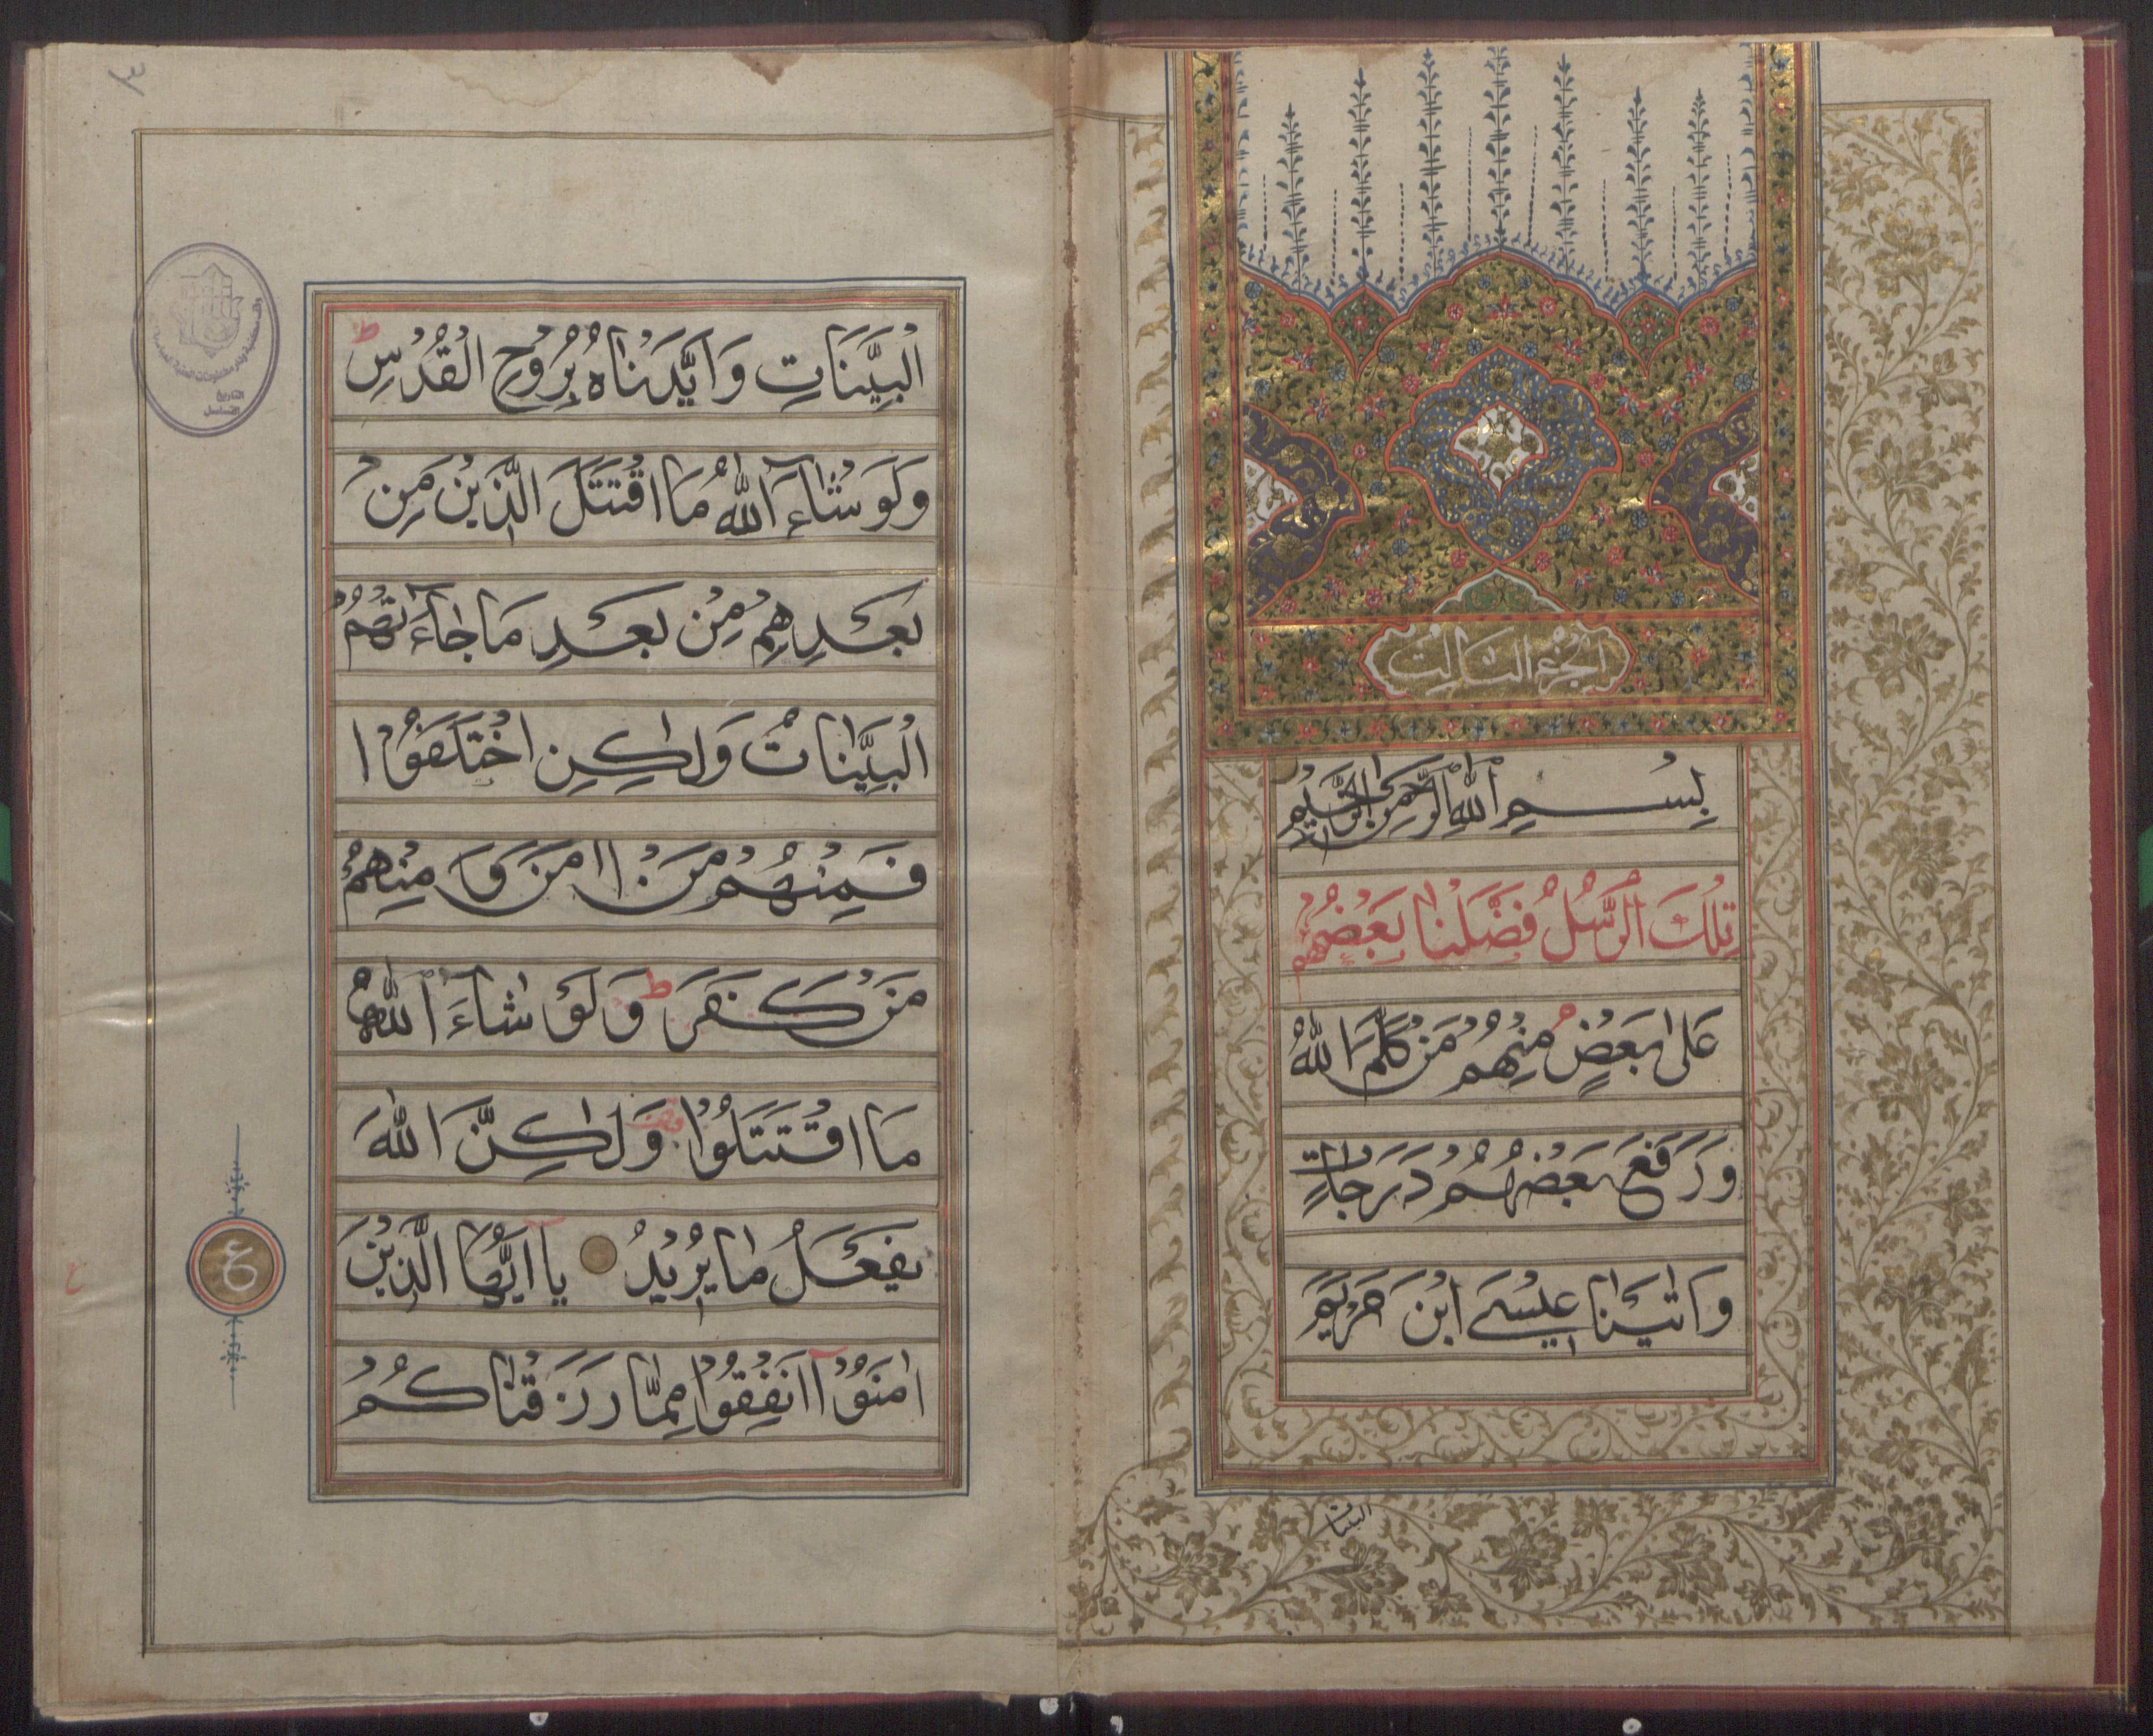 الجزء الثالث
بِسْمِ اللهِ الرَّحْمٰنِ الرَّحِيْمِ
تِلْكَ الرُّسُلُ فَضَّلْنٰا بَعْضَهُمْ
عَلٰى بَعْضٍ مِنْهُمْ مَنْ كَلَّمَ اللهُ
وَرَفَعَ بَعْضَهُمْ دَرَجٰاتٍ
وَاٰتَيْنٰا عِيْسَى ابْنَ مَرْيَمَ
البينات
٣
الْبَيِّنَاتِ وَاَيَّدْنَاهُ بِرُوْحِ الْقُدُسِ ط
وَلَوْ شٰاءَ اللهُ مَا اقْتَتَلَ الَّذِيْنَ مِنْ
بَعْدِهِمْ مِنْ بَعْدِ مَا جٰاءَتْهُمُ
الْبَيِّنٰاتُ وَلٰكِنِ اخْتَلَفُوْا
فَمِنْهُمْ مَنْ اٰمَنَ وَمِنْهُمْ
مَنْ كَفَرَ ط وَلَوْ شٰاءَ اللهُ
مَا اقْتَتَلُوْا وَلٰكِنَّ اللهَ
يَفْعَلُ مٰا يُرِيْدُ يٰا اَيُّهَا الَّذِيْنَ
اٰمَنُوْا اَنْفِقُوْا مِمّٰا رَزَقْنٰاكُمْ
ع
ع
التاريخ
التسلسل